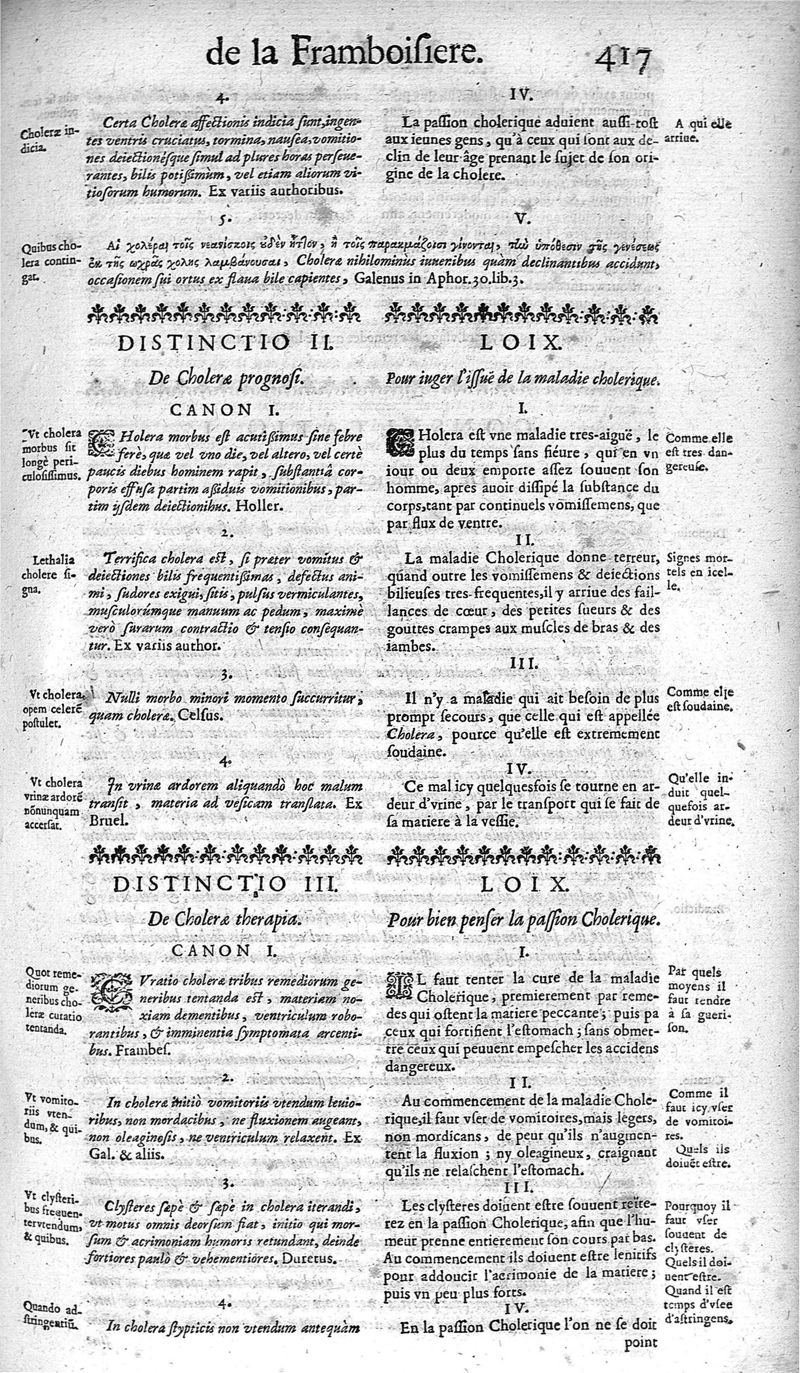 de la Framboiſiere. 417
4.
Choleræ in-
dicia.
Certa Choleræ affectionis indicia ſunt, ingen-
tes ventris cruciatus, tormina, nauſea, vomitio-
nes deiectionéſque ſimul ad plures horas perſeue-
rantes, bilis potiſſimum, vel etiam aliorum vi-
tioſorum humorum. Ex variis authoribus.
IV.
La paſſion cholerique aduient auſſi-toſt
aux ieunes gens, qu'à ceux qui ſont aux de-
clin de leur âge prenant le ſujet de ſon ori-
gine de la cholere.
A qui elle
arriue.
5.
V.
Quibus cho-
lera contin-
gat.
Αἱ χολέραι τοῖς νεανίσκοις οὐδὲν ἧττον, ἢ τοῖς παρακμάζουσι γίνονται, τὴν ὑπόθεσιν τῆς γενέσεως
ἐκ τῆς ὠχρᾶς χολῆς λαμβάνουσαι, Choleræ nihilominus iuuenibus quàm declinantibus accidunt,
occaſionem ſui ortus ex flaua bile capientes, Galenus in Aphor. 30. lib. 3.
DISTINCTIO II.
De Choleræ prognoſi.
CANON I.
Vt cholera
morbus ſit
longè peri-
culoſiſſimus.
CHolera morbus eſt acutiſſimus ſine febre
ferè, que vel vno die, vel altero, vel certè
paucis diebus hominem rapit, ſubſtantiâ cor-
poris effuſa partim aſſiduis vomitionibus, par-
tim ijſdem deiectionibus. Holler.
2.
Lethalia
cholere ſi-
gna.
Terrifica cholera eſt, ſi præter vomitus &
deiectiones bilis frequentiſſimas, defectus ani-
mi, ſudores exigui, ſitis, pulſus vermiculantes,
muſculorúmque manuum ac pedum, maximè
verò ſurarum contractio & tenſio conſequan-
tur. Ex variis author.
3.
Vt cholera
opem celerẽ
poſtulet.
Nulli morbo minori momento ſuccurritur,
quam cholerâ. Celſus.
4.
Vt cholera
vrinæ ardorẽ
nõnunquam
accerſat.
In vrinæ ardorem aliquandò hoc malum
tranſit, materia ad veſicam tranſlata. Ex
Bruel.
LOIX.
Pour iuger l'iſſuë de la maladie cholerique.
I.
CHolera eſt vne maladie tres-aiguë, le
plus du temps ſans fiéure, qui en vn
iour ou deux emporte aſſez ſouuent ſon
homme, apres auoir diſſipé la ſubſtance du
corps, tant par continuels vomiſſemens, que
par flux de ventre.
Comme elle
eſt tres dan-
gereuſe.
II.
La maladie Cholerique donne terreur,
quand outre les vomiſſemens & deiections
bilieuſes tres-frequentes, il y arriue des fail-
lances de cœur, des petites ſueurs & des
gouttes crampes aux muſcles de bras & des
iambes.
Signes mor-
tels en icel-
le.
III.
Il n'y a maladie qui ait beſoin de plus
prompt ſecours, que celle qui eſt appellée
Cholera, pource qu'elle eſt extremement
ſoudaine.
Comme elle
eſt ſoudaine.
IV.
Ce mal icy quelquesfois ſe tourne en ar-
deur d'vrine, par le tranſport qui ſe fait de
ſa matiere à la veſſie.
Qu'elle in-
duit quel-
quefois ar-
deur d'vrine.
DISTINCTIO III.
De Choleræ therapia.
CANON I.
Quot reme-
diorum ge-
neribus cho-
leræ curatio
tentanda.
CVratio choleræ tribus remediorum ge-
neribus tentanda eſt, materiam no-
xiam dementibus, ventriculum robo-
rantibus, & imminentia ſymptomata arcenti-
bus. Frambeſ.
2.
Vt vomito-
riis vten-
dum, & qui-
bus.
In choleræ initiò vomitoriis vtendum leuio-
ribus, non mordacibus, ne fluxionem augeant,
non oleaginoſis, ne ventriculum relaxent. Ex
Gal. & aliis.
3.
Vt clyſteri-
bus frequen-
ter vtendum,
& quibus.
Clyſteres ſæpè & ſæpè in cholera iterandi,
vt motus omnis deorſum fiat, initio qui mor-
ſum & acrimoniam humoris retundant, deinde
fortiores paulò & vehementiòres. Duretus.
4.
Quando ad-
ſtringentiũ.
In cholera ſtypticis non vtendum antequàm
LOIX.
Pour bien penſer la paſſion Cholerique.
I.
IL faut tenter la cure de la maladie
Cholerique, premierement par reme-
des qui oſtent la matiere peccante; puis pa
ceux qui fortifient l'eſtomach; ſans obmet-
tre ceux qui peuuent empeſcher les accidens
dangereux.
Par quels
moyens il
faut tendre
à ſa gueri-
ſon.
II.
Au commencement de la maladie Chole-
rique, il faut vſer de vomitoires, mais legers,
non mordicans, de peur qu'ils n'augmen-
tent la fluxion; ny oleagineux, craignant
qu'ils ne relaſchent l'eſtomach.
Comme il
faut icy vſer
de vomitoi-
res.
Quels ils
doiuẽt eſtre.
III.
Les clyſteres doiuent eſtre ſouuent reïte-
rez en la paſſion Cholerique, afin que l'hu-
meur prenne entierement ſon cours par bas.
Au commencement ils doiuent eſtre lenitifs
pour addoucir l'acrimonie de la matiere;
puis vn peu plus forts.
Pourquoy il
faut vſer
ſouuent de
clyſteres.
Quels il doi-
uent eſtre.
Quand il eſt
temps d'vſee
d'aſtringens.
IV.
En la paſſion Cholerique l'on ne ſe doit
point